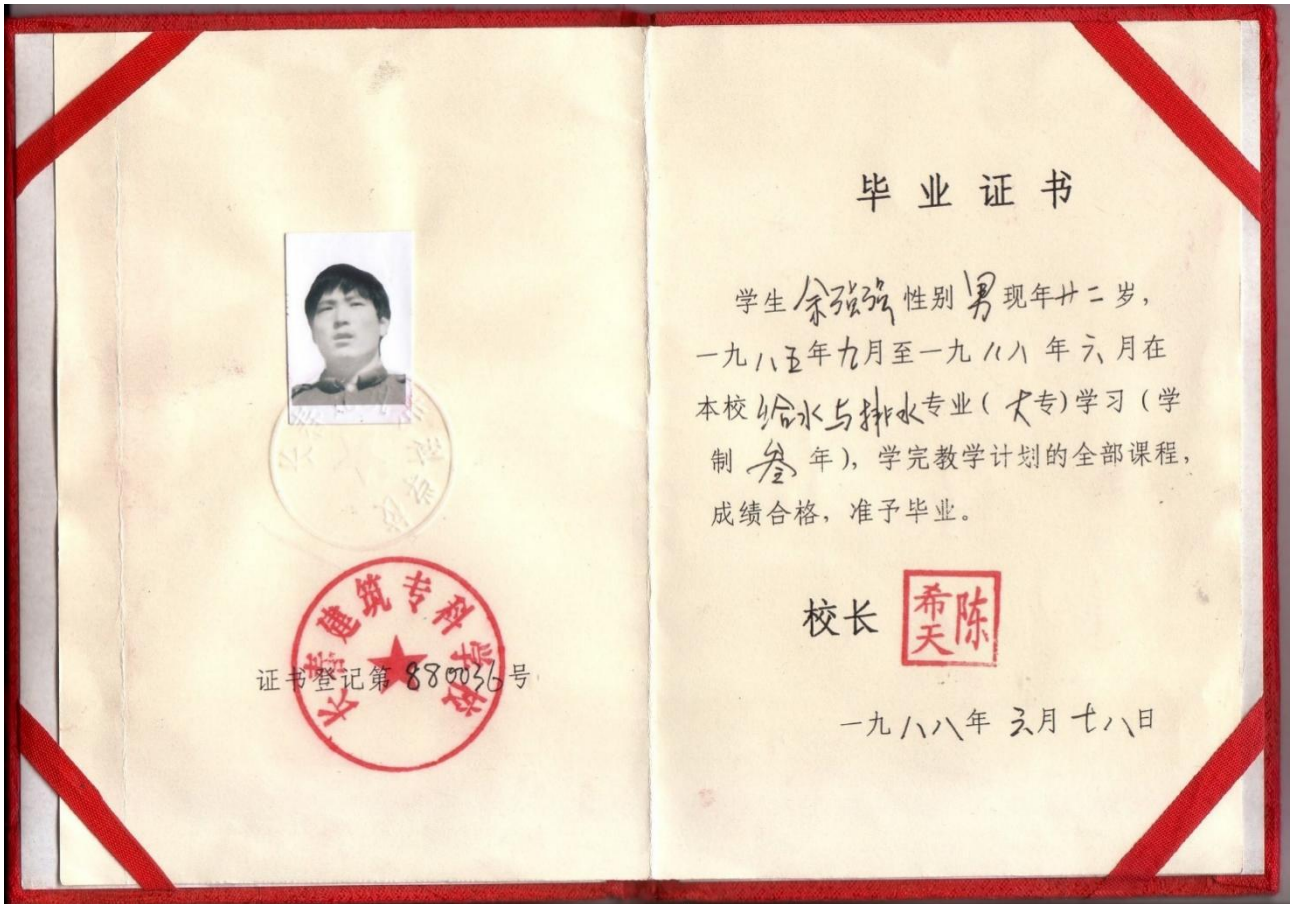 长春建筑专科学校
证书登记第880036号
毕业证书
学生余强强性别男现年廿二岁，
一九八五年九月至一九八八年六月在
本校给水与排水专业(大专)学习(学
制叁年)，学完教学计划的全部课程，
成绩合格，准予毕业。
校长 陈希天
一九八八年六月十八日